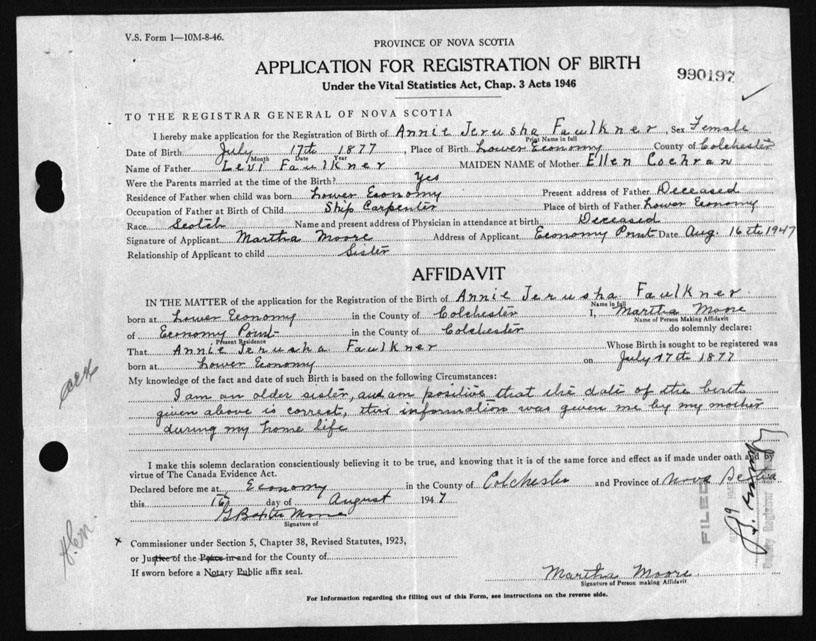 V.S. Form 1—10M-8-46.
PROVINCE OF NOVA SCOTIA
APPLICATION FOR REGISTRATION OF BIRTH
990197
Under the Vital Statistics Act, Chap. 3 Acts 1946
TO THE REGISTRAR GENERAL OF NOVA SCOTIA
I hereby make application for the Registration of Birth of Annie Jerusha Faulkner, Sex Female
Print Name in full
Date of Birth July 17th 1877, Place of Birth Lower Economy County of Colchester
Month Date Year
Name of Father Levi Faulkner MAIDEN NAME of Mother Ellen Cochran
Were the Parents married at the time of the Birth? Yes
Residence of Father when child was born Lower Economy Present address of Father Deceased
Occupation of Father at Birth of Child Ship Carpenter Place of birth of Father Lower Economy
Race Scotch Name and present address of Physician in attendance at birth Deceased
Signature of Applicant Martha Moore Address of Applicant Economy Point Date Aug. 16th 1947
Relationship of Applicant to child Sister
AFFIDAVIT
IN THE MATTER of the application for the Registration of the Birth of Annie Jerusha Faulkner
Name in full
born at Lower Economy in the County of Colchester I, Martha Moore
Name of Person Making Affidavit
of Economy Point in the County of Colchester do solemnly declare:
Present Residence
That Annie Jerusha Faulkner Whose Birth is sought to be registered was
born at Lower Economy on July 17th 1877
My knowledge of the fact and date of such Birth is based on the following Circumstances:
I am an older sister, and am positive that the date of the birth
given above is correct, this information was given me by my mother
during my home life
I make this solemn declaration conscientiously believing it to be true, and knowing that it is of the same force and effect as if made under oath and by
virtue of The Canada Evidence Act.
Declared before me at Economy in the County of Colchester and Province of Nova Scotia
this 16 day of August 1947
G Baxter Moore
Signature of
FILED
x Commissioner under Section 5, Chapter 38, Revised Statutes, 1923,
or Justice of the Peace in and for the County of
If sworn before a Notary Public affix seal.
Martha Moore
Signature of Person making Affidavit
For Information regarding the filling out of this Form, see instructions on the reverse side.